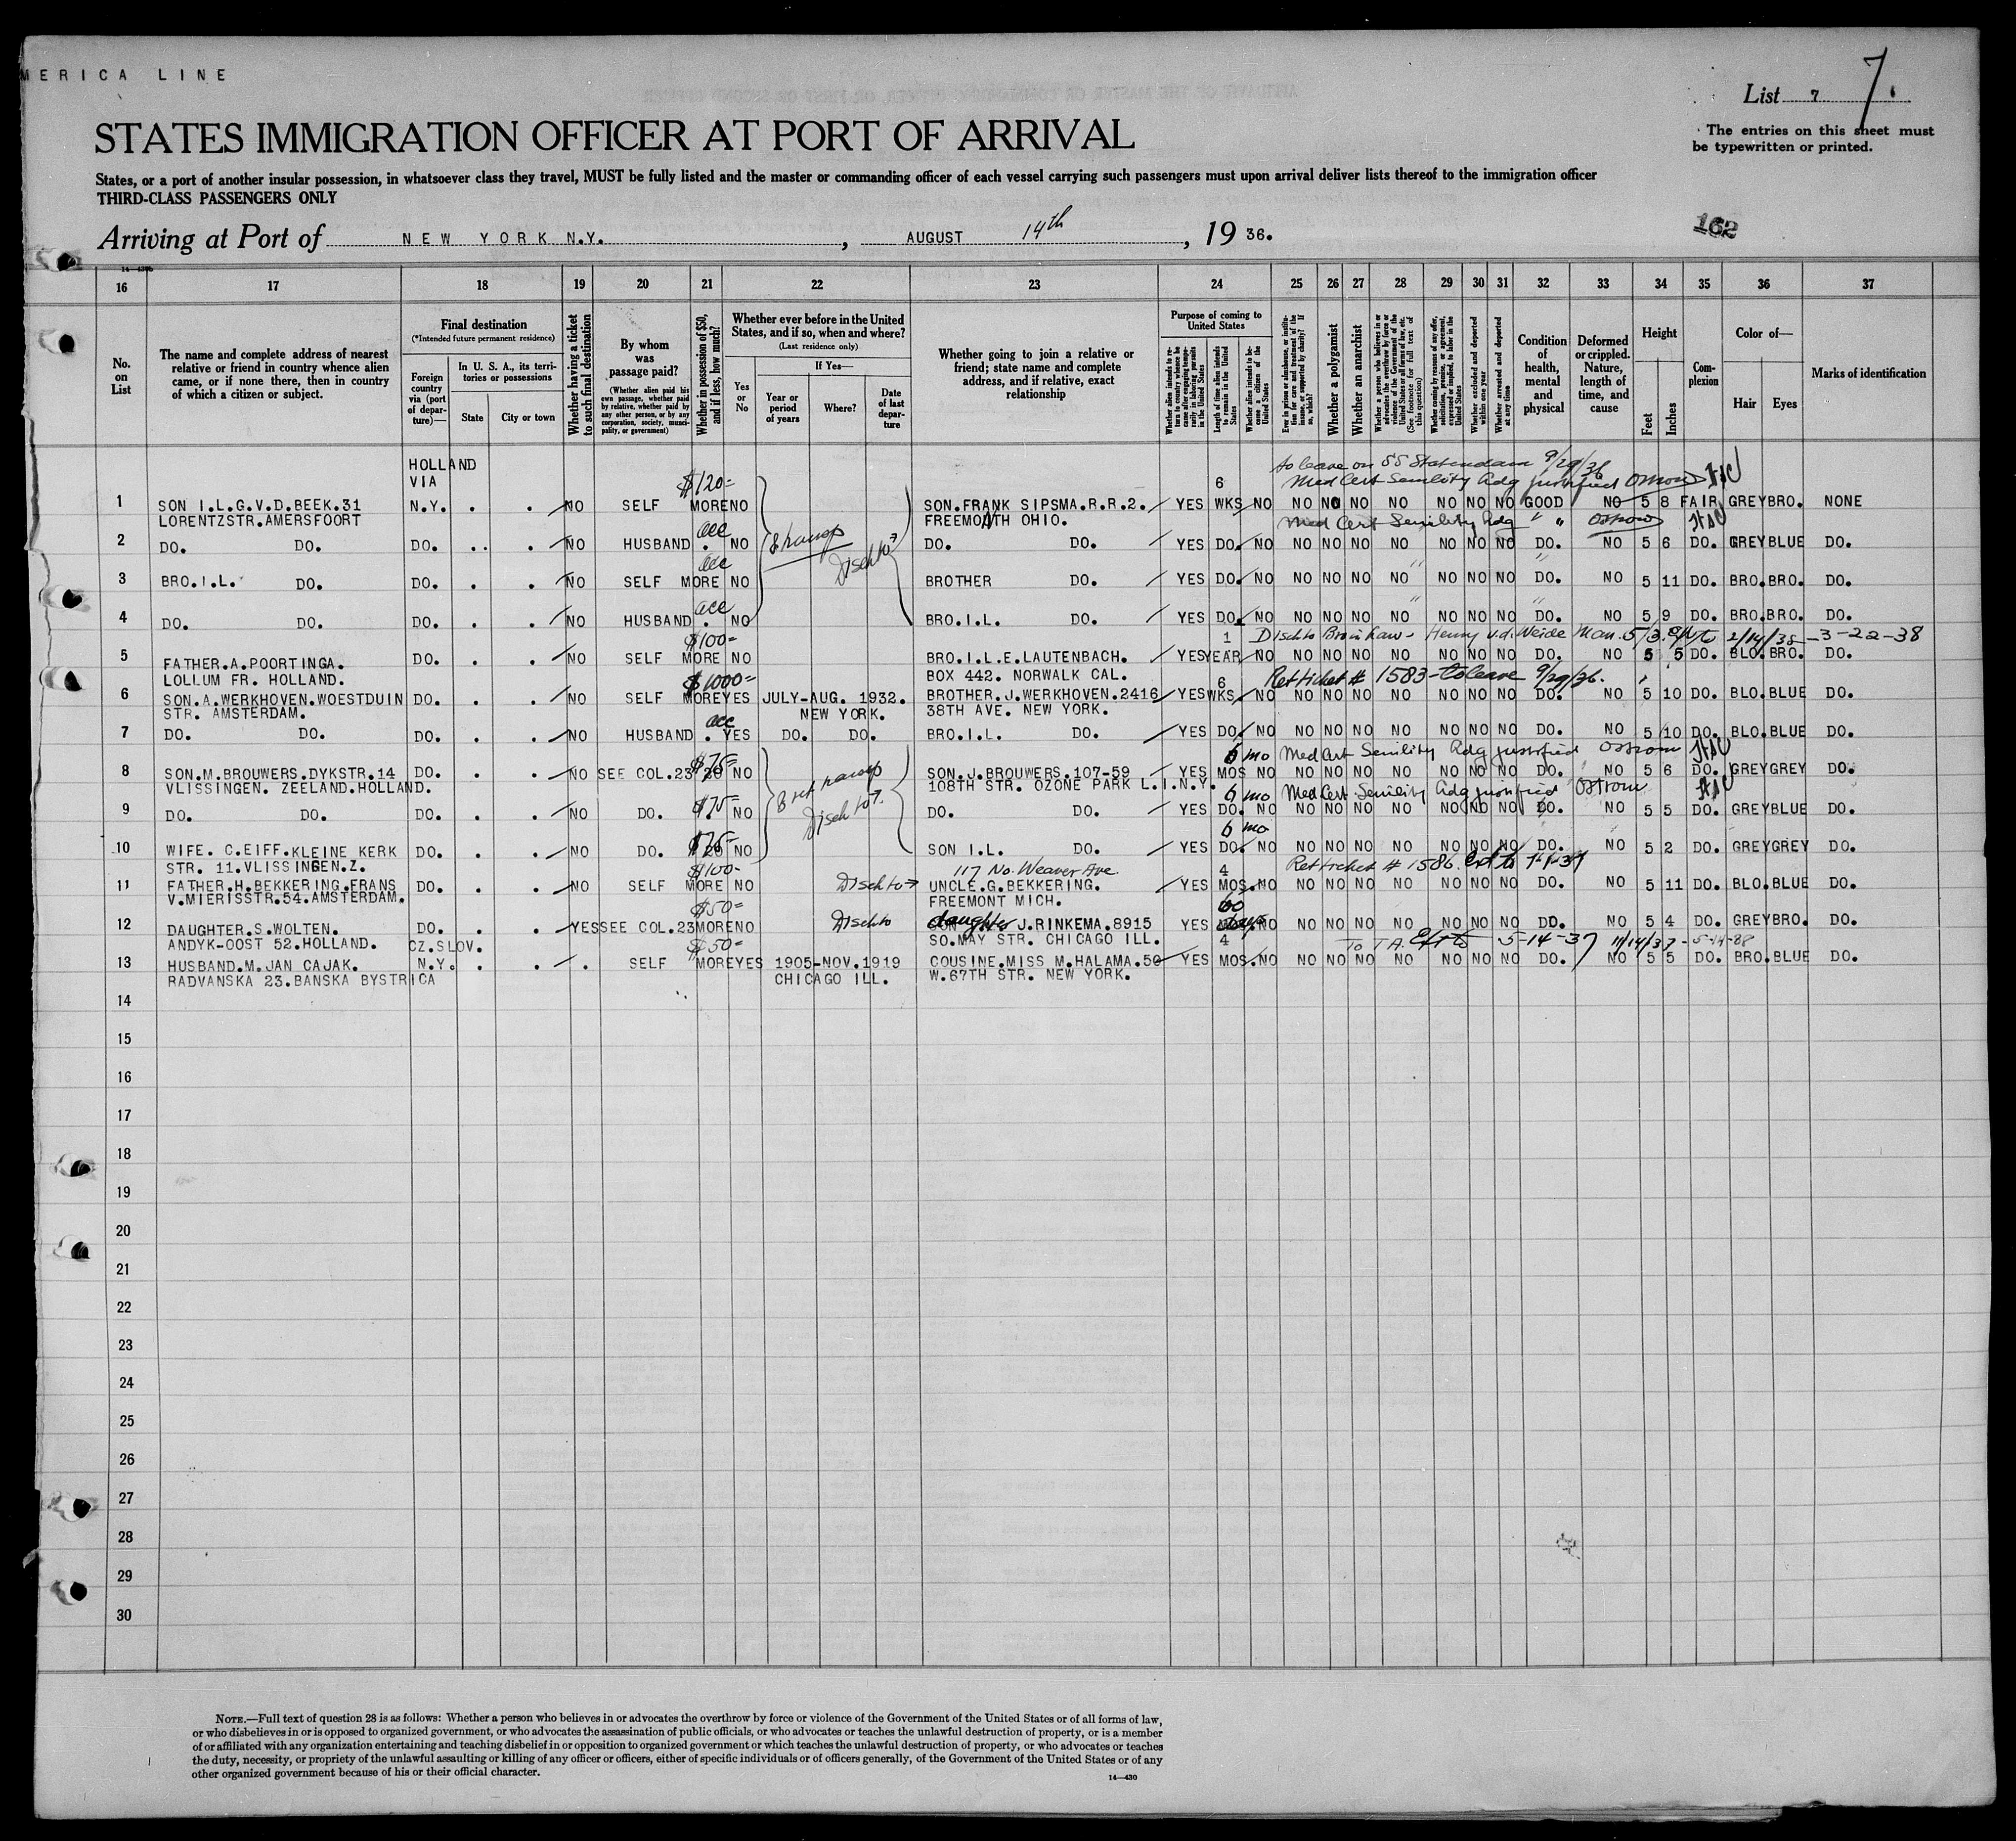 MERICA LINE
List 7 7.
STATES IMMIGRATION OFFICER AT PORT OF ARRIVAL
The entries on this sheet must
be typewritten or printed.
States, or a port of another insular possession, in whatsoever class they travel, MUST be fully listed and the master or commanding officer of each vessel carrying such passengers must upon arrival deliver lists thereof to the immigration officer
THIRD-CLASS PASSENGERS ONLY
Arriving at Port of NEW YORK N.Y., AUGUST 14th, 19 36.
162
16 17 18 19 20 21 22 23 24 25 26 27 28 29 30 31 32 33 34 35 36 37
No. on List
The name and complete address of nearest
relative or friend in country whence alien
came, or if none there, then in country
of which a citizen or subject.
Final destination
(*Intended future permanent residence)
Foreign country via (port of departure)—
In U. S. A., its territories or possessions
State
City or town
Whether having a ticket to such final destination
By whom was passage paid?
(Whether alien paid his own passage, whether paid by relative, whether paid by any other person, or by any corporation, society, municipality, or government)
Whether in possession of $50, and if less, how much?
Whether ever before in the United
States, and if so, when and where?
(Last residence only)
Yes or No
If Yes—
Year or period of years
Where?
Date of last departure
Whether going to join a relative or
friend; state name and complete
address, and if relative, exact
relationship
Purpose of coming to United States
Length of time alien intends to remain in the United States
Whether alien intends to become a citizen of the United States
Whether a polygamist
Whether an anarchist
Whether excluded and deported within one year
Whether arrested and deported at any time
Condition of health, mental and physical
Deformed or crippled. Nature, length of time, and cause
Height
Feet
Inches
Complexion
Color of—
Hair
Eyes
Marks of identification
HOLLAND
VIA
$120- 6 to leave on SS Statendam 9/29/36
Med Cert Senility Adg justified
1 SON I.L.G.V.D.BEEK.31 N.Y. . . NO SELF MORE NO SON.FRANK SIPSMA.R.R.2. YES WKS NO NO NO NO NO NO NO NO GOOD NO 5 8 FAIR GREY BRO. NONE
LORENTZSTR.AMERSFOORT FREEMONTH OHIO.
acc Med Cert Senility Adg " "
2 DO. DO. DO. . . NO HUSBAND . NO DO. DO. YES DO. NO NO NO NO NO NO NO NO DO. NO 5 6 DO. GREY BLUE DO.
acc Disch to
3 BRO.I.L. DO. DO. . . NO SELF MORE NO BROTHER DO. YES DO. NO NO NO NO NO NO NO NO DO. NO 5 11 DO. BRO. BRO. DO.
acc
4 DO. DO. DO. . . NO HUSBAND . NO BRO.I.L. DO. YES DO. NO NO NO NO NO NO NO NO DO. NO 5 9 DO. BRO. BRO. DO.
$100- 1 Disch to Bro in law - Henry v.d. Weide 2/14/38 - 3-22-38
5 FATHER.A.POORTINGA. DO. . . NO SELF MORE NO BRO.I.L.E.LAUTENBACH. YES YEAR NO NO NO NO NO NO NO NO DO. NO 5 5 DO. BLO. BRO. DO.
LOLLUM FR. HOLLAND. BOX 442. NORWALK CAL.
$1000- 6 Ret ticket # 1583 - to leave 9/29/36.
6 SON.A.WERKHOVEN.WOESTDUIN DO. . . NO SELF MORE YES JULY-AUG. 1932. BROTHER.J.WERKHOVEN.2416 YES WKS. NO NO NO NO NO NO NO NO DO. NO 5 10 DO. BLO. BLUE DO.
STR. AMSTERDAM. NEW YORK. 38TH AVE. NEW YORK.
acc
7 DO. DO. DO. . . NO HUSBAND . YES DO. DO. BRO.I.L. DO. YES DO. NO NO NO NO NO NO NO NO DO. NO 5 10 DO. BLO. BLUE DO.
$75- 6 mo Med Cert Senility Adg justified Ostrom
8 SON.M.BROUWERS.DYKSTR.14 DO. . . NO SEE COL.23 20 NO SON.J.BROUWERS.107-59 YES MOS NO NO NO NO NO NO NO NO DO. NO 5 6 DO. GREY GREY DO.
VLISSINGEN. ZEELAND.HOLLAND. 108TH STR. OZONE PARK L.I.N.Y.
$75- 6 mo Med Cert Senility Adg justified Ostrom
9 DO. DO. DO. . . NO DO. . NO DO. DO. YES DO. NO NO NO NO NO NO NO NO DO. NO 5 5 DO. GREY BLUE DO.
$75- 6 mo
10 WIFE. C.EIFF.KLEINE KERK DO. . . NO DO. 20 NO SON I.L. DO. YES DO. NO NO NO NO NO NO NO NO DO. NO 5 2 DO. GREY GREY DO.
STR. 11.VLISSINGEN.Z.
$100- 117 No. Weaver Ave 4 Ret ticket # 1586.
11 FATHER.H.BEKKERING.FRANS DO. . . NO SELF MORE NO Disch to UNCLE.G.BEKKERING. YES MOS. NO NO NO NO NO NO NO NO DO. NO 5 11 DO. BLO. BLUE DO.
V.MIERISSTR.54.AMSTERDAM. FREEMONT MICH.
$50- 60
12 DAUGHTER.S.WOLTEN. DO. . . YES SEE COL.23 MORE NO Disch to daughter J.RINKEMA.8915 YES days NO NO NO NO NO NO NO NO DO. NO 5 4 DO. GREY BRO. DO.
ANDYK-OOST 52.HOLLAND. CZ.SLOV. SO.MAY STR. CHICAGO ILL.
$50- 4 To T.A. 5-14-37 11/14/37 - 5-14-38
13 HUSBAND.M.JAN CAJAK. N.Y. . . . SELF MORE YES 1905-NOV.1919 COUSINE.MISS M.HALAMA.50 YES MOS. NO NO NO NO NO NO NO NO DO. NO 5 5 DO. BRO. BLUE DO.
RADVANSKA 23.BANSKA BYSTRICA CHICAGO ILL. W.67TH STR. NEW YORK.
14
15
16
17
18
19
20
21
22
23
24
25
26
27
28
29
30
NOTE.—Full text of question 28 is as follows: Whether a person who believes in or advocates the overthrow by force or violence of the Government of the United States or of all forms of law,
or who disbelieves in or is opposed to organized government, or who advocates the assassination of public officials, or who advocates or teaches the unlawful destruction of property, or is a member
of or affiliated with any organization entertaining and teaching disbelief in or opposition to organized government or which teaches the unlawful destruction of property, or who advocates or teaches
the duty, necessity, or propriety of the unlawful assaulting or killing of any officer or officers, either of specific individuals or of officers generally, of the Government of the United States or of any
other organized government because of his or their official character.
14—430